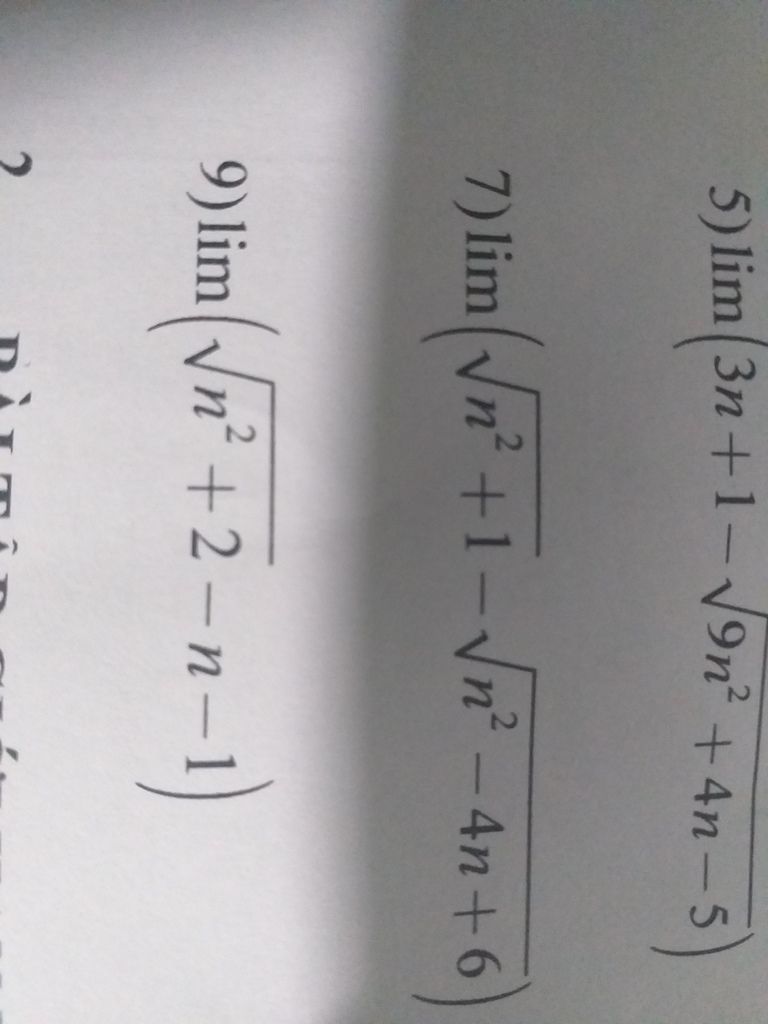 5) lim(3n+1−√(9n²+4n−5))
7) lim(√(n²+1)−√(n²−4n+6))
9) lim(√(n²+2)−n−1)